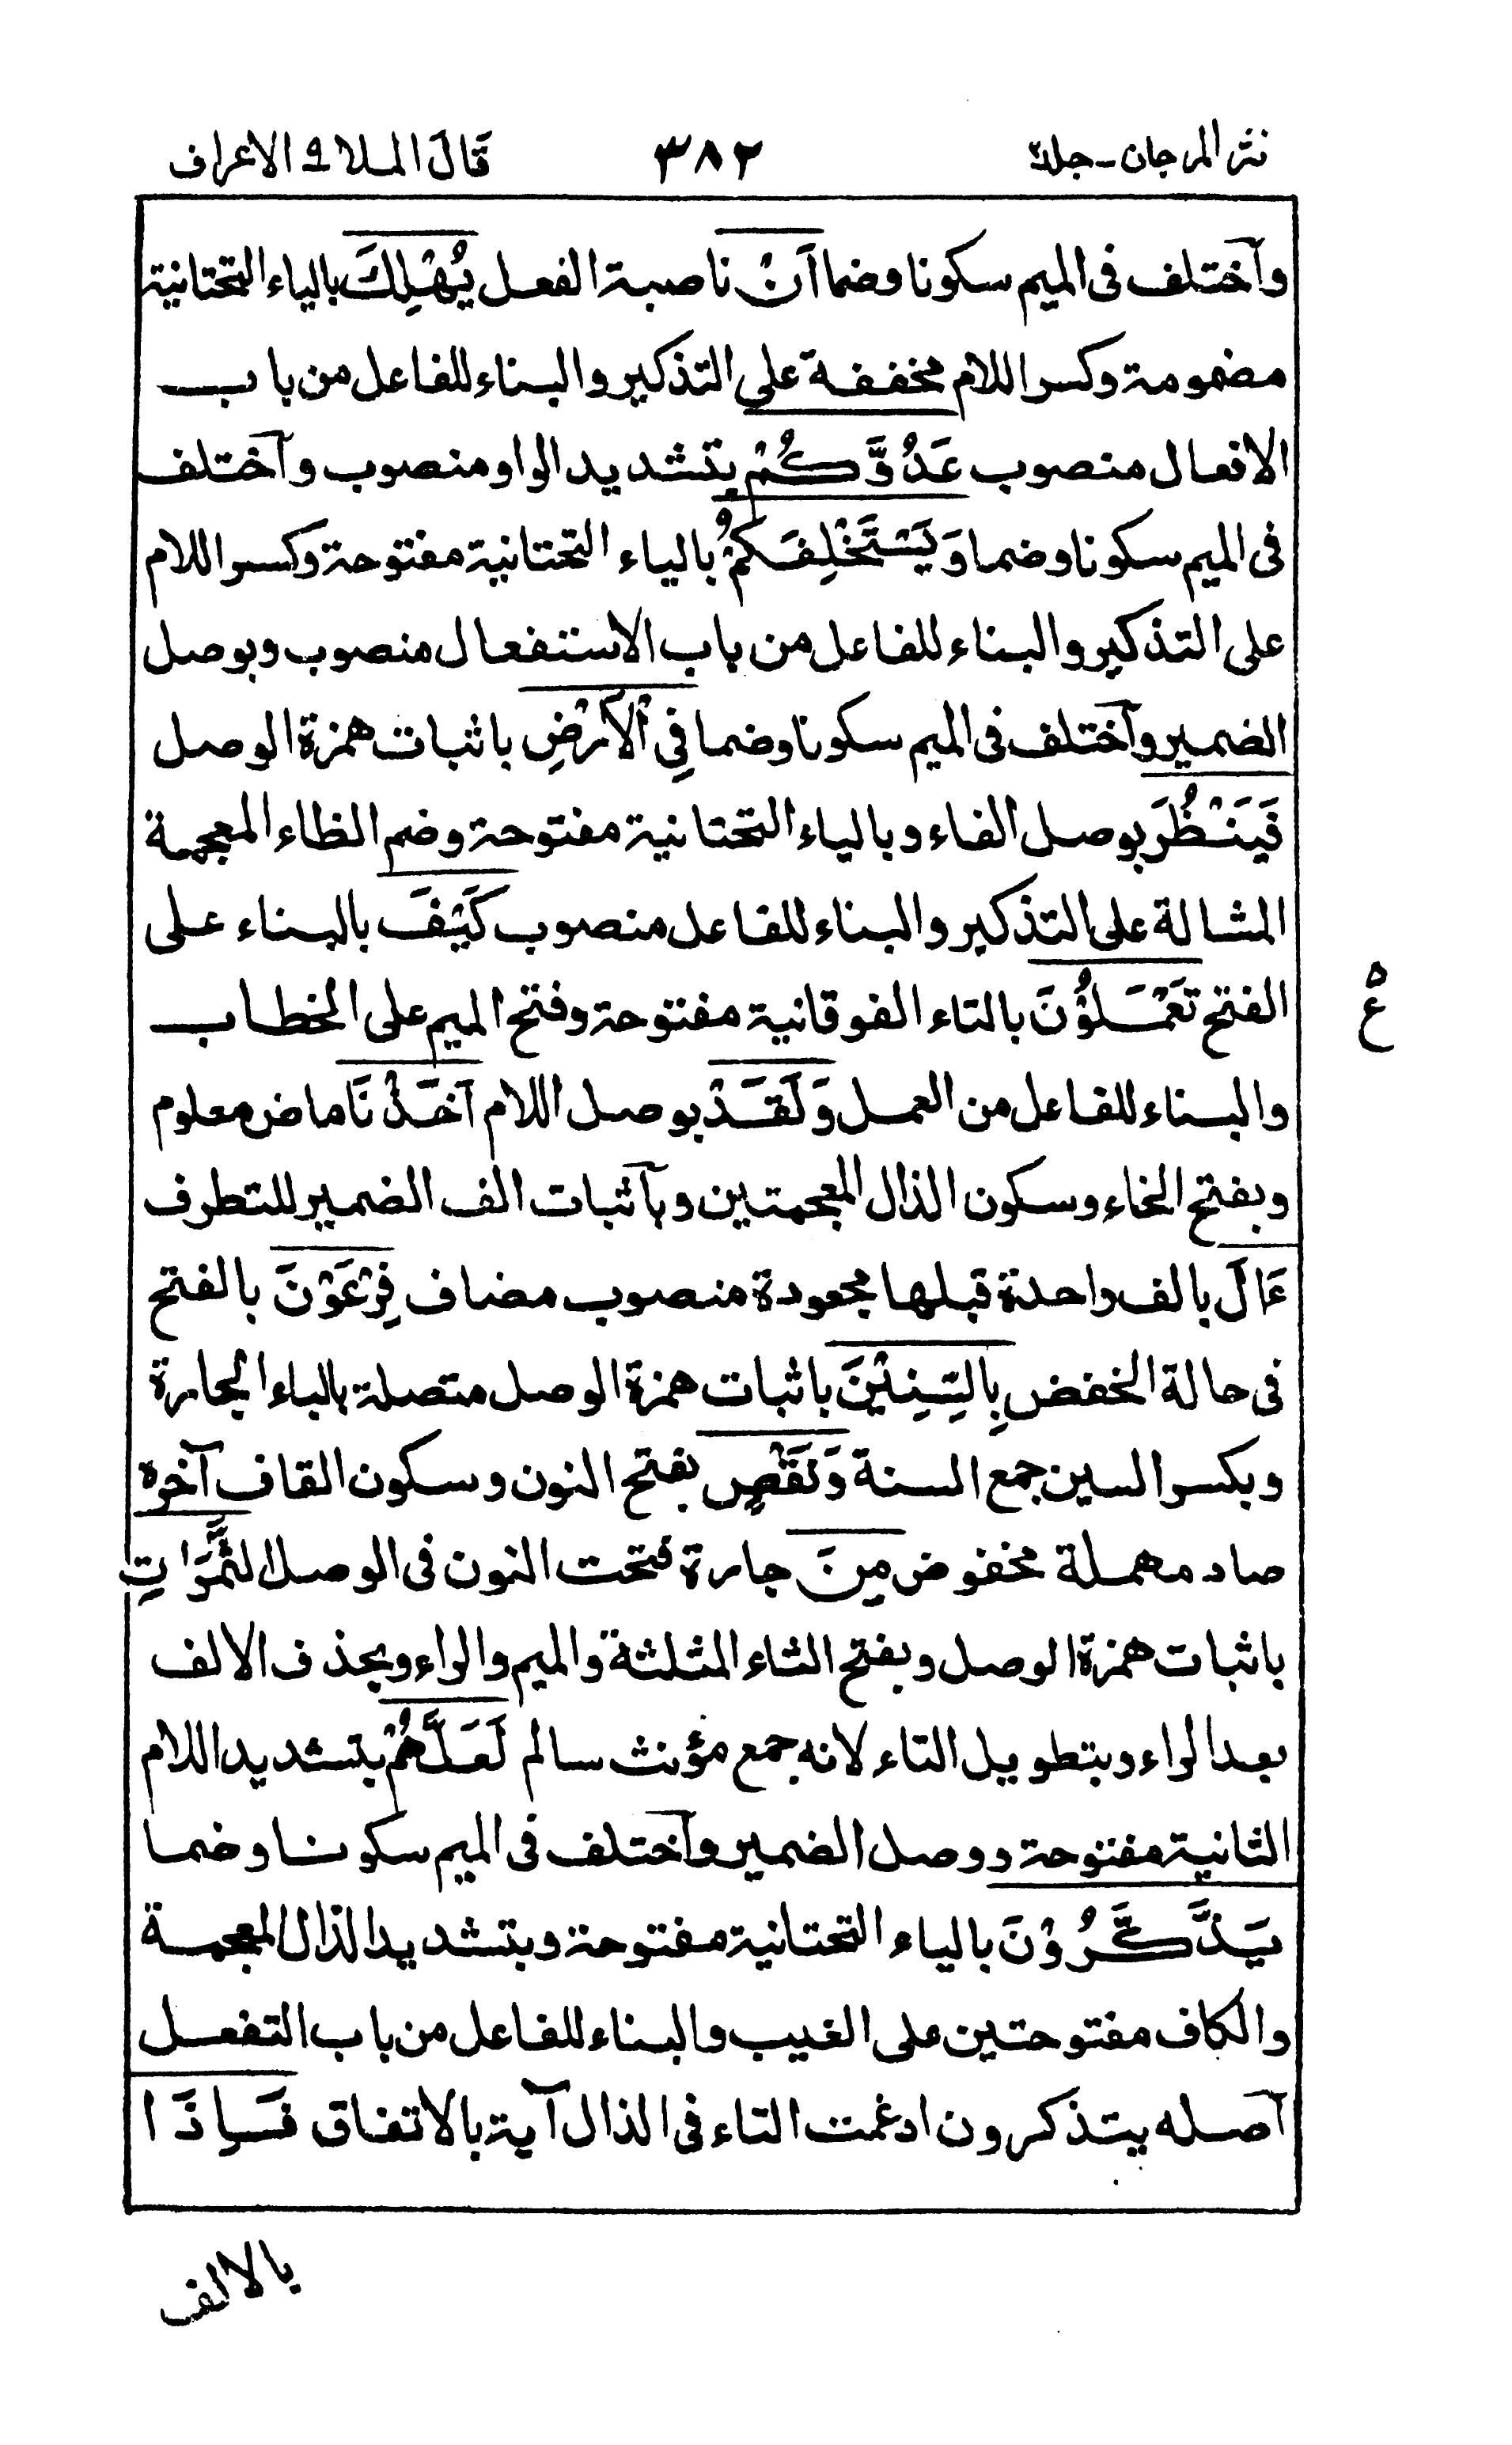 نثر المرجان - جلد ٢
٣٨٢
قَالَ الملا ٩ الاعراف
وآختلف فى الميم سكونا وضما آنْ ناصبة الفعل يُهْلِكَ بالياء التحتانية
مضمومة وكسر اللام مخففة على التذكير والبناء للفاعل من باب
الافعال منصوب عَدُوَّكُمْ بتشديد الواو منصوب وآختلف
فى الميم سكونا وضما وَيَسْتَخْلِفَكُمْ بالياء التحتانية مفتوحة وكسر اللام
على التذكير والبناء للفاعل من باب الاستفعال منصوب وبوصل
الضمير وآختلف فى الميم سكونا وضما فِى الْاَرْضِ باثبات همزة الوصل
فَيَنْظُرَ بوصل الفاء وبالياء التحتانية مفتوحة وضم الظاء المعجمة
المشالة على التذكير والبناء للفاعل منصوب كَيْفَ بالبناء على
الفتح تَعْمَلُوْنَ بالتاء الفوقانية مفتوحة وفتح الميم على الخطاب
ع
والبناء للفاعل من العمل وَلَقَدْ بوصل اللام آخَذْنَا ماض معلوم
وبفتح الخاء وسكون الذال المعجمتين وبآثبات الف الضمير للتطرف
ءَالَ بالف واحدة قبلها مجعودة منصوب مضاف فِرْعَوْنَ بالفتح
فى حالة الخفض بِالسِّنِيْنَ باثبات همزة الوصل متصلة بالباء الجارة
وبكسر السين جمع السنة وَنَقْصٍ بفتح النون وسكون القاف آخره
صاد مهملة مخفوض مِنَ جارة فتحت النون فى الوصل الثَّمَرَاتِ
باثبات همزة الوصل وبفتح الثاء المثلثة والميم والراء وبحذف الالف
بعد الراء وبتطويل التاء لانه جمع مؤنث سالم لَعَلَّهُمْ بتشديد اللام
الثانية مفتوحة ووصل الضمير وآختلف فى الميم سكونا وضما
يَذَّكَّرُوْنَ بالياء التحتانية مفتوحة وبتشديد الذال المعجمة
والكاف مفتوحتين على الغيب والبناء للفاعل من باب التفعل
آصله يتذكرون ادغمت التاء فى الذال آية بالاتفاق فَاِذَا
بالالف